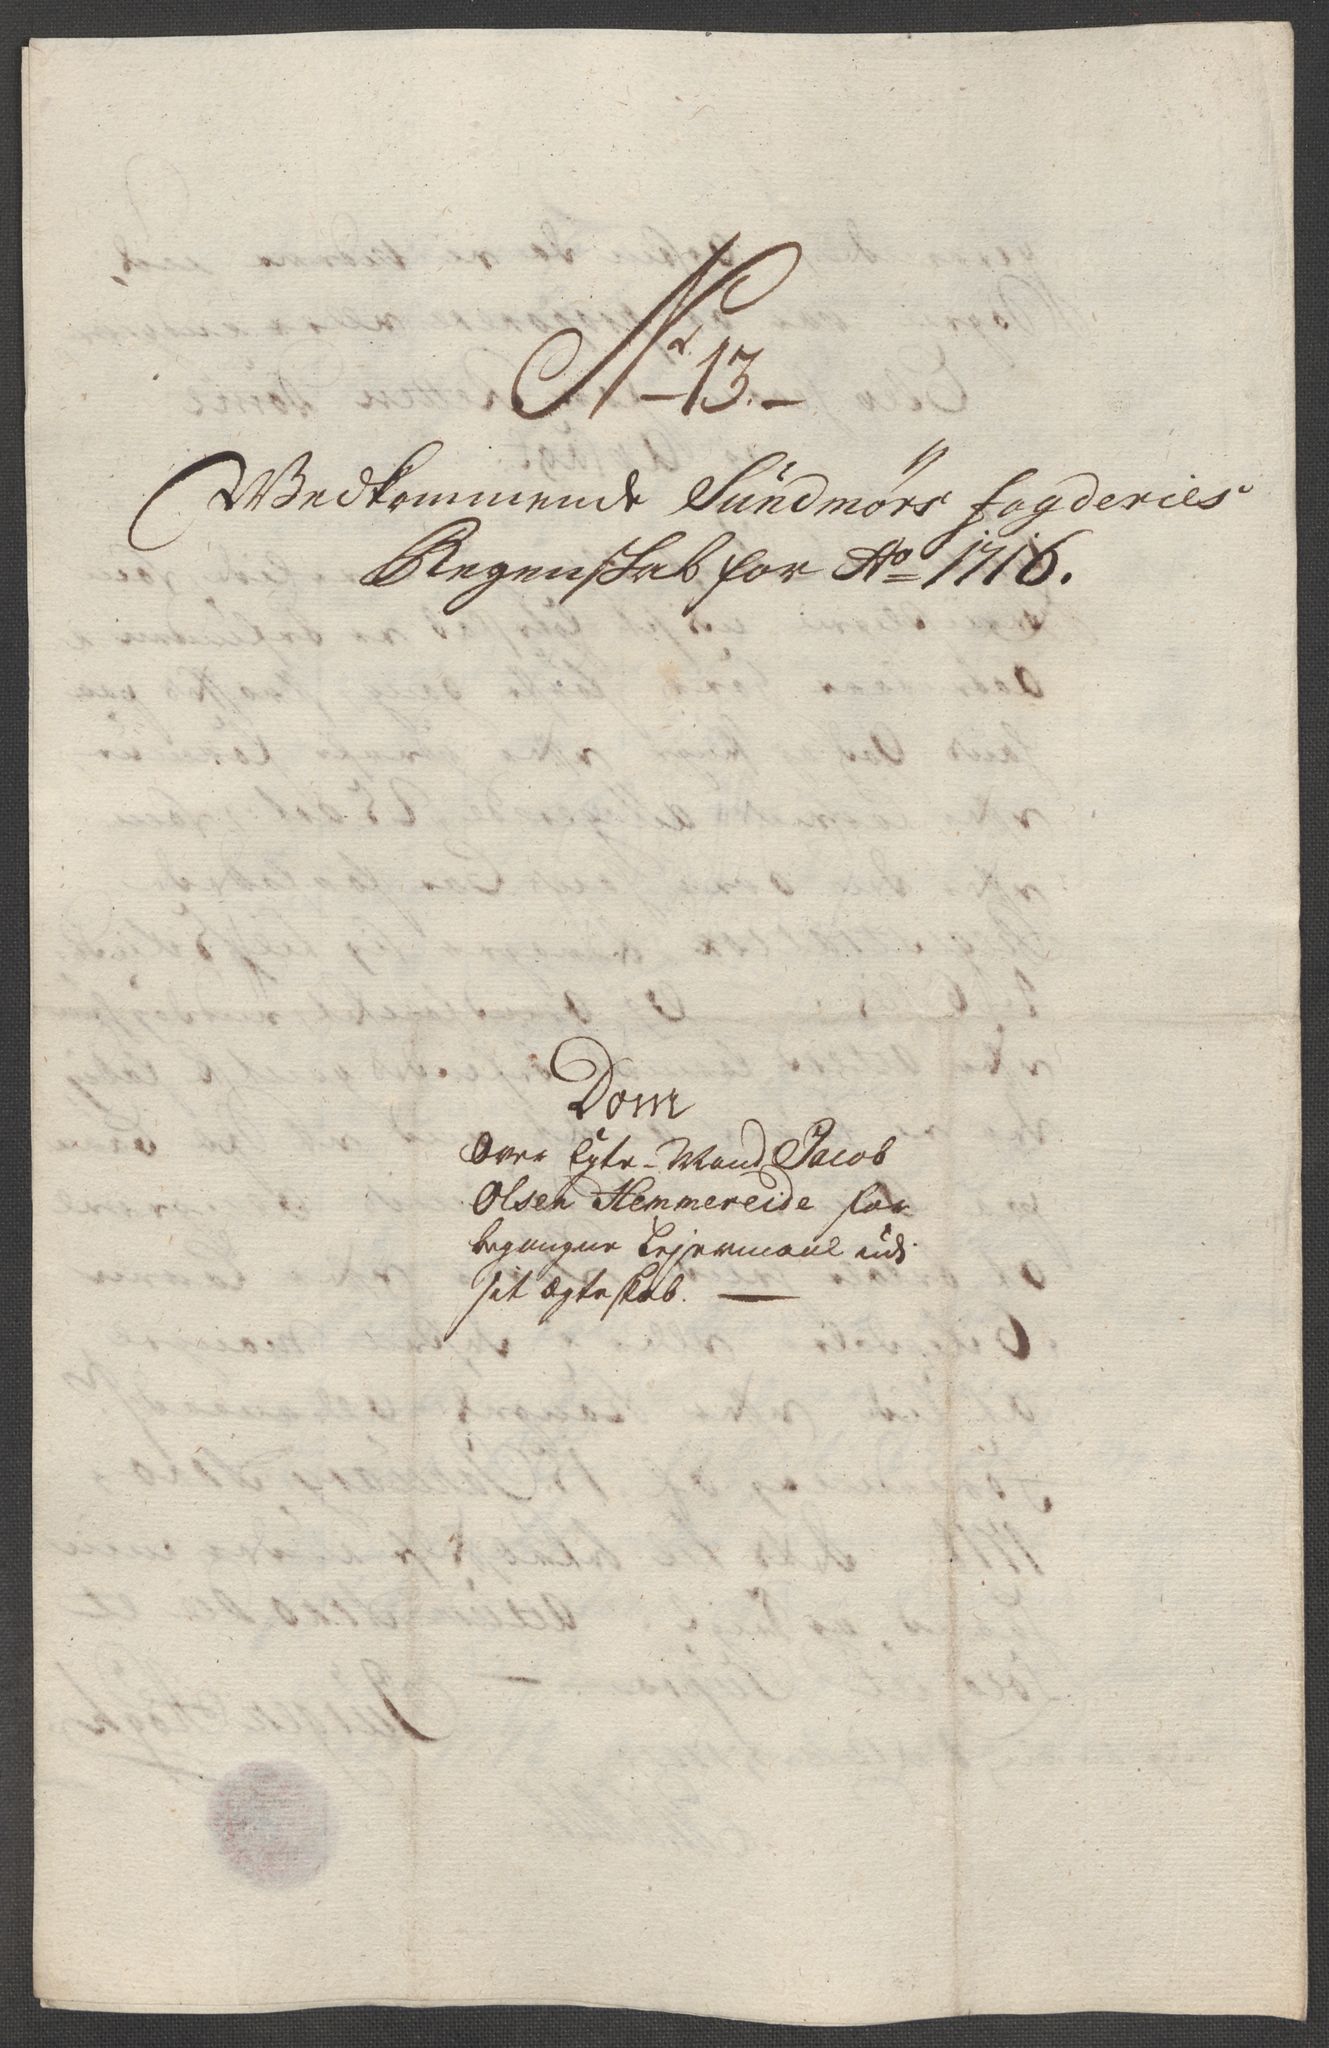 No 13.
Vedkommende Sündmörs fogderies
Regenskab for Ao 1716.
Dom
Over Egte-Mand Jacob
Olsen Hemmereide for
begangne Lejermaal udi
sit Ægteskab.